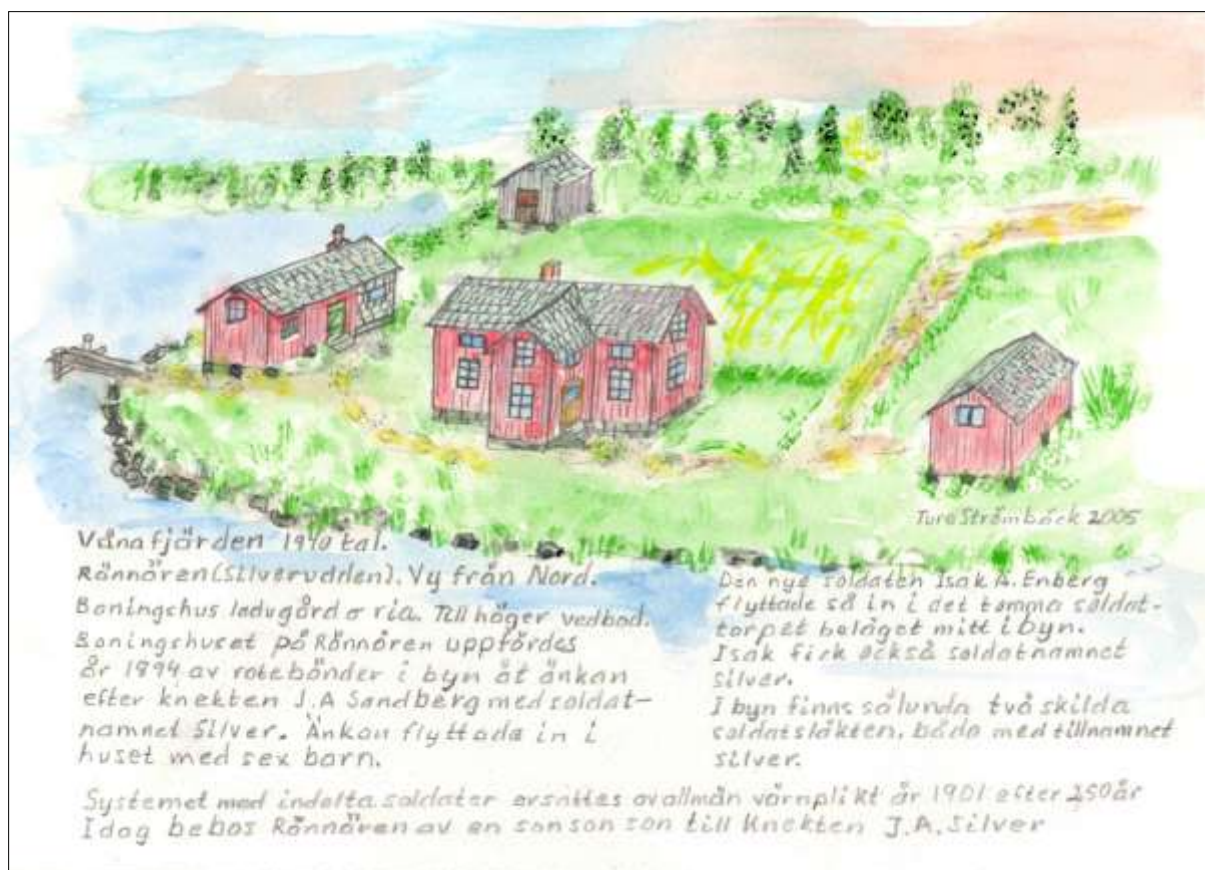 Ture Strömbäck 2005
Vånafjärden 1940 tal.
Rönnören (Silverudden). Vy från Nord.
Boningshus ladugård o ria. Till höger vedbod.
Boningshuset på Rönnören uppfördes
år 1894 av rotebönder i byn åt änkan
efter knekten J.A Sandberg med soldat-
namnet Silver. Änkan flyttade in i
huset med sex barn.
Den nye soldaten Isak A. Enberg
flyttade så in i det tomma soldat-
torpet beläget mitt i byn.
Isak fick också soldatnamnet
silver.
I byn finns sålunda två skilda
soldatsläkten, båda med tillnamnet
silver.
Systemet med indelta soldater ersattes av allmän värnplikt år 1901 efter 250 år
Idag bebos Rönnören av en sonson son till Knekten J.A. Silver